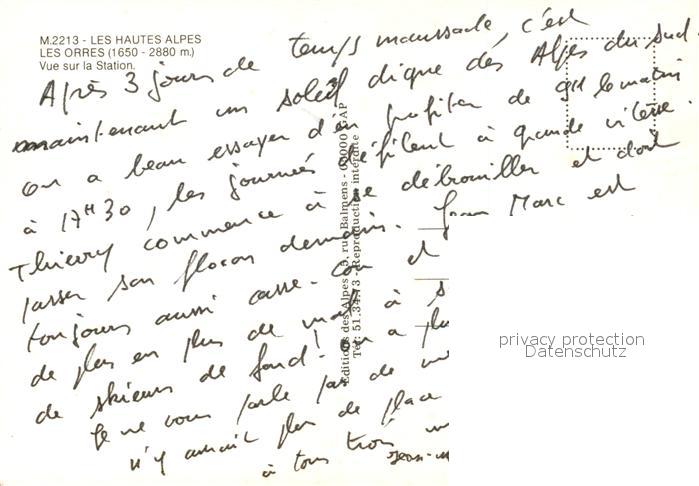 M.2213 - LES HAUTES ALPES
LES ORRES (1650 - 2880 m.)
Vue sur la Station.
Après 3 jours de temps maussade, c'est
maintenant un soleil digne des Alpes du Sud.
on a beau essayer d'en profiter de 9H le matin
à 17H30, les journées défilent à grande vitesse.
Thierry commence à se débrouiller et doit
passer son flocon demain. Jean Marc est
toujours aussi casse-cou et
de plus en plus de mal à s
de skieurs de fond! On a plu
Je ne vous parle pas de
n'y aurait plus de place
à tous trois
Jean-M
Editions des Alpes - 5, rue Balmens - 05000 GAP
Tél: 51.34.73 - Reproduction interdite
privacy protection
Datenschutz